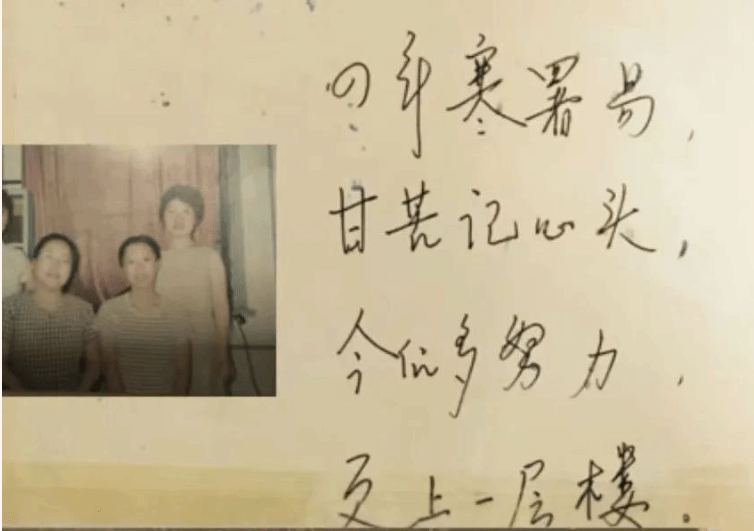 四年寒署易,
甘苦记心头,
今仍多努力,
更上一层楼.